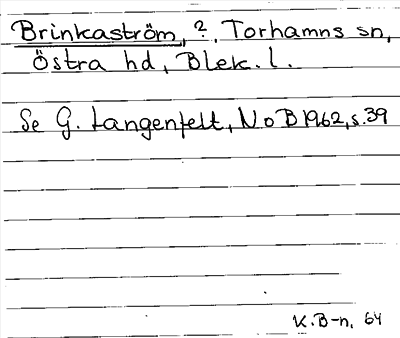 Brinkaström, ?, Torhamns sn,
Östra hd, Blek. l.
Se G. Langenfelt, NoB 1962, s. 39
K.B-n, 64